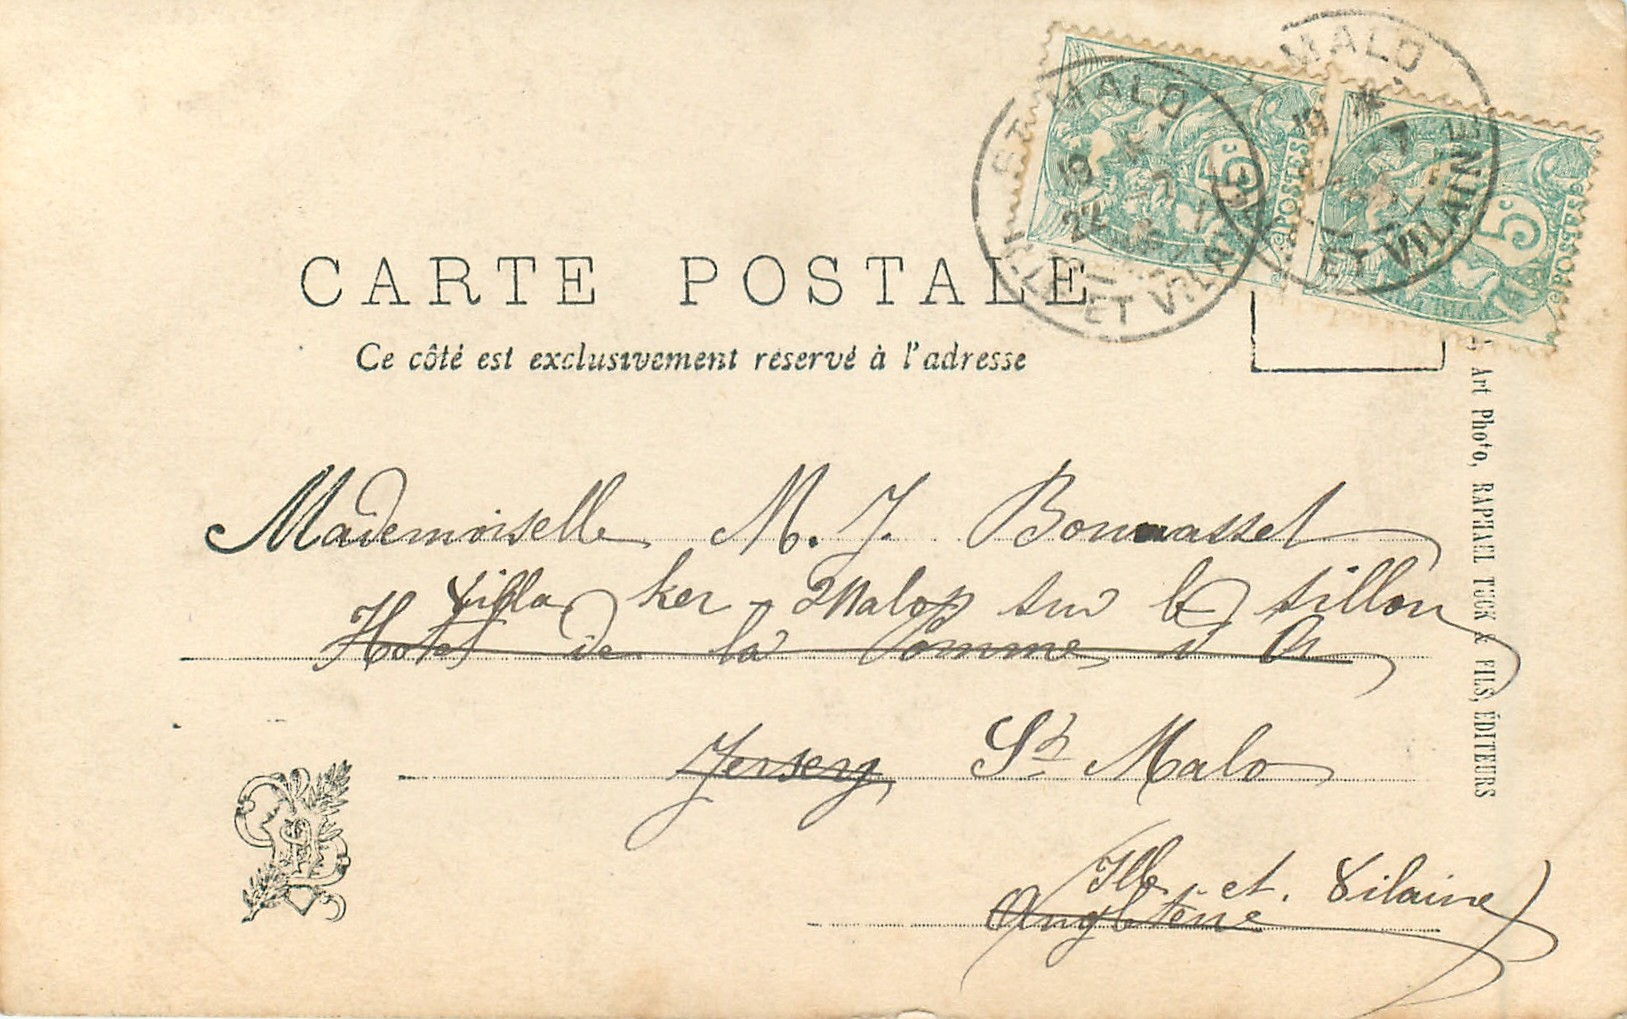 CARTE POSTALE
Ce côté est exclusivement réservé à l'adresse
ST MALO
ET VILAINE
MALO
ET VILAINE
5c
POSTES
5c
Mademoiselle M. J. Bonnasset
Villa ker Malop sur le sillon
Hotel de la Pomme d'Or
Jersey St Malo
Ille et Vilaine
Angleterre
Art Photo, RAPHAEL TUCK & FILS, ÉDITEURS